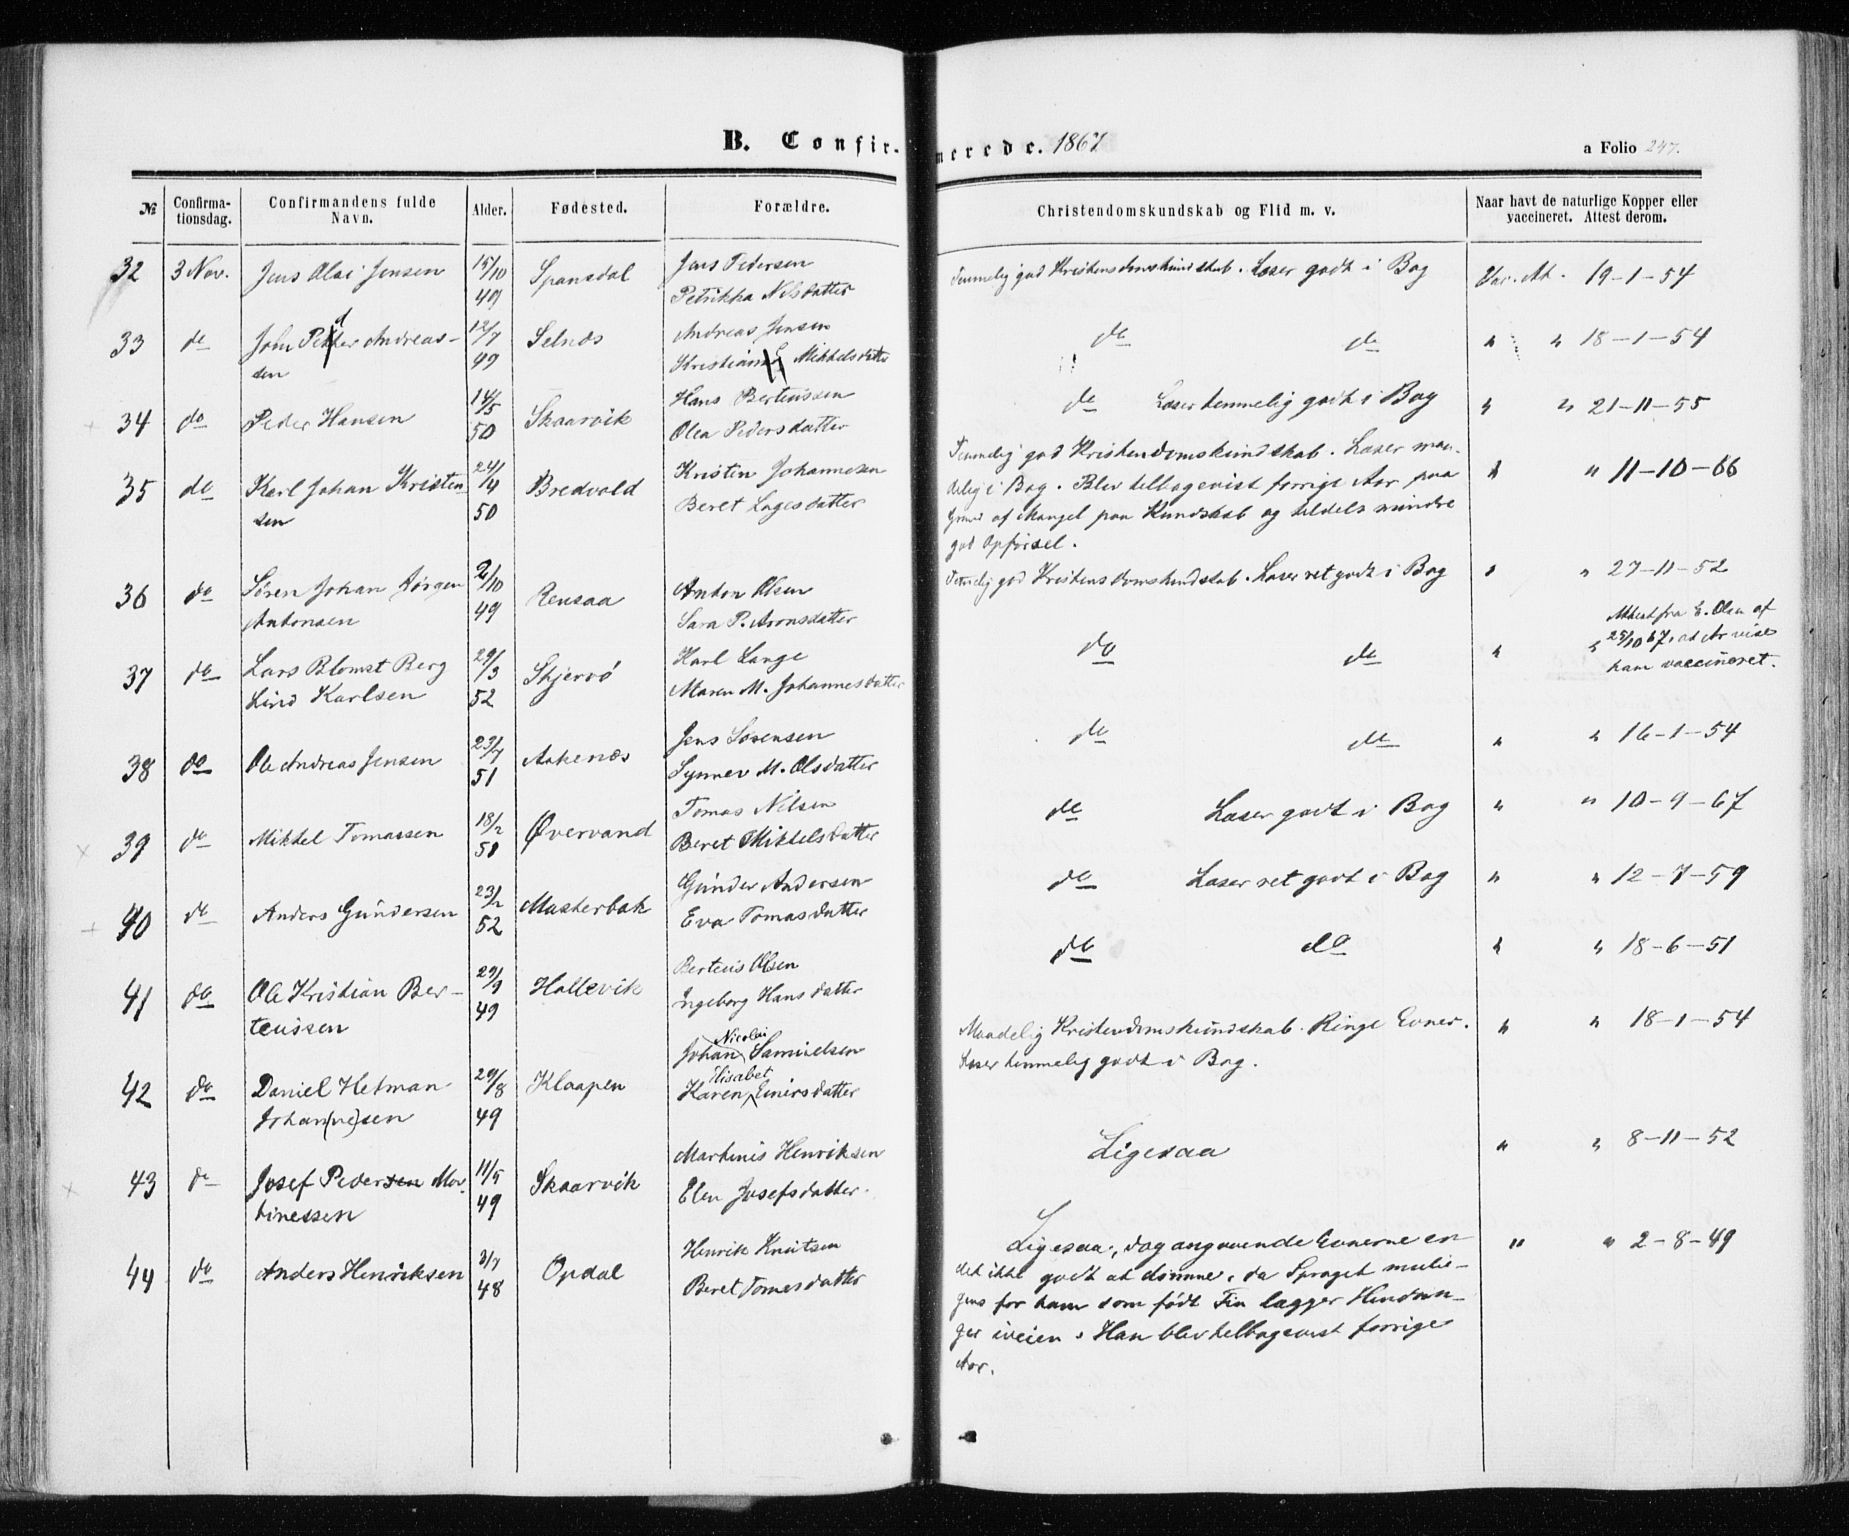 B. Confir- merede. 1867
a Folio 247.
№ Confirma- Confirmandens fulde Alder. Fødested. Forældre. Christendomskundskab og Flid m. v. Naar havt de naturlige Kopper eller
tionsdag. Navn. vaccineret. Attest derom.
32 3 Nov. Jens Olai Jensen 15/10 49 Spansdal Jens Pedersen
Nilsdatter
Temmelig god Kristensdomskundskab. Læser godt i Bog Vac. At. 19-1-54
33 do John Petter Andreas- 12/7 49 Selnæs Andreas Jensen
sen Mikkelsdatter
do do " " 18-1-54
34 do Peder Hansen 14/5 50 Skaarvik Hans Berteussen
Olea Pedersdatter
do Læser temmelig godt i Bog " " 21-11-55
35 do Karl Johan Kristen- 24/4 50 Bredvold Kristen Johannesen
sen Beret Lagesdatter
Temmelig god Kristendomskundskab. Læser maa-
delig i Bog. Blev tilbagevist forrige Aar paa " " 11-10-66
Grund af Mangel paa Kundskab og tildels mindre
god Opførsel.
36 do Søren Johan Jørgen 2/10 49 Rensaa Anton Olsen
Antonsen Sara P. Aronsdatter
Temelig god Kristensdomskundskab. Læser ret godt i Bog " " 27-11-52
37 do Lars Blomst Berg 29/3 52 Skjervø Karl Lange
Lind Karlsen Maren M. Johannesdatter
do do " " Attest fra E. Olsen af
25/10 67, at Ar vise
ham vaccineret.
38 do Ole Andreas Jensen 23/7 51 Aakenæs Jens Sørensen
Synnev M. Olsdatter
do do " " 16-1-54
39 do Mikkel Tomassen 18/2 51 Øvervand Tomas Nilsen
Beret Mikkelsdatter
do Læser godt i Bog " " 10-9-67
40 do Anders Gundersen 23/2 52 Masterbak Gunder Andersen
Eva Tomasdatter
do Læser ret godt i Bog " " 12-7-59
41 do Ole Kristian Ber- 29/9 49 Hallevik Berteus Olsen
teussen Ingeborg Hansdatter
do do " " 18-6-51
42 do Daniel Hetman 29/8 49 Klaapen Johan Nicolai Samuelsen
Johan(ne)sen Karen Elisabet Einersdatter
Maadelig Kristendomskundskab. Ringe Evner. " " 18-1-54
Læser temmelig godt i Bog.
43 do Josef Pedersen Mar- 11/5 49 Skaarvik Martinus Henriksen
tinessen Elen Josefsdatter.
Ligesaa " " 8-11-52
44 do Anders Henriksen 3/7 48 Opdal Henrik Knutsen
Beret Tomasdatter
Ligesaa, dog angaaende Evnerne en " " 2-8-49
det ikke godt at dømme, da Sproget mulig-
gens for ham som født Fin lægger Hindrin-
ger iveien. Han blev tilbagevist forrige
Aar.